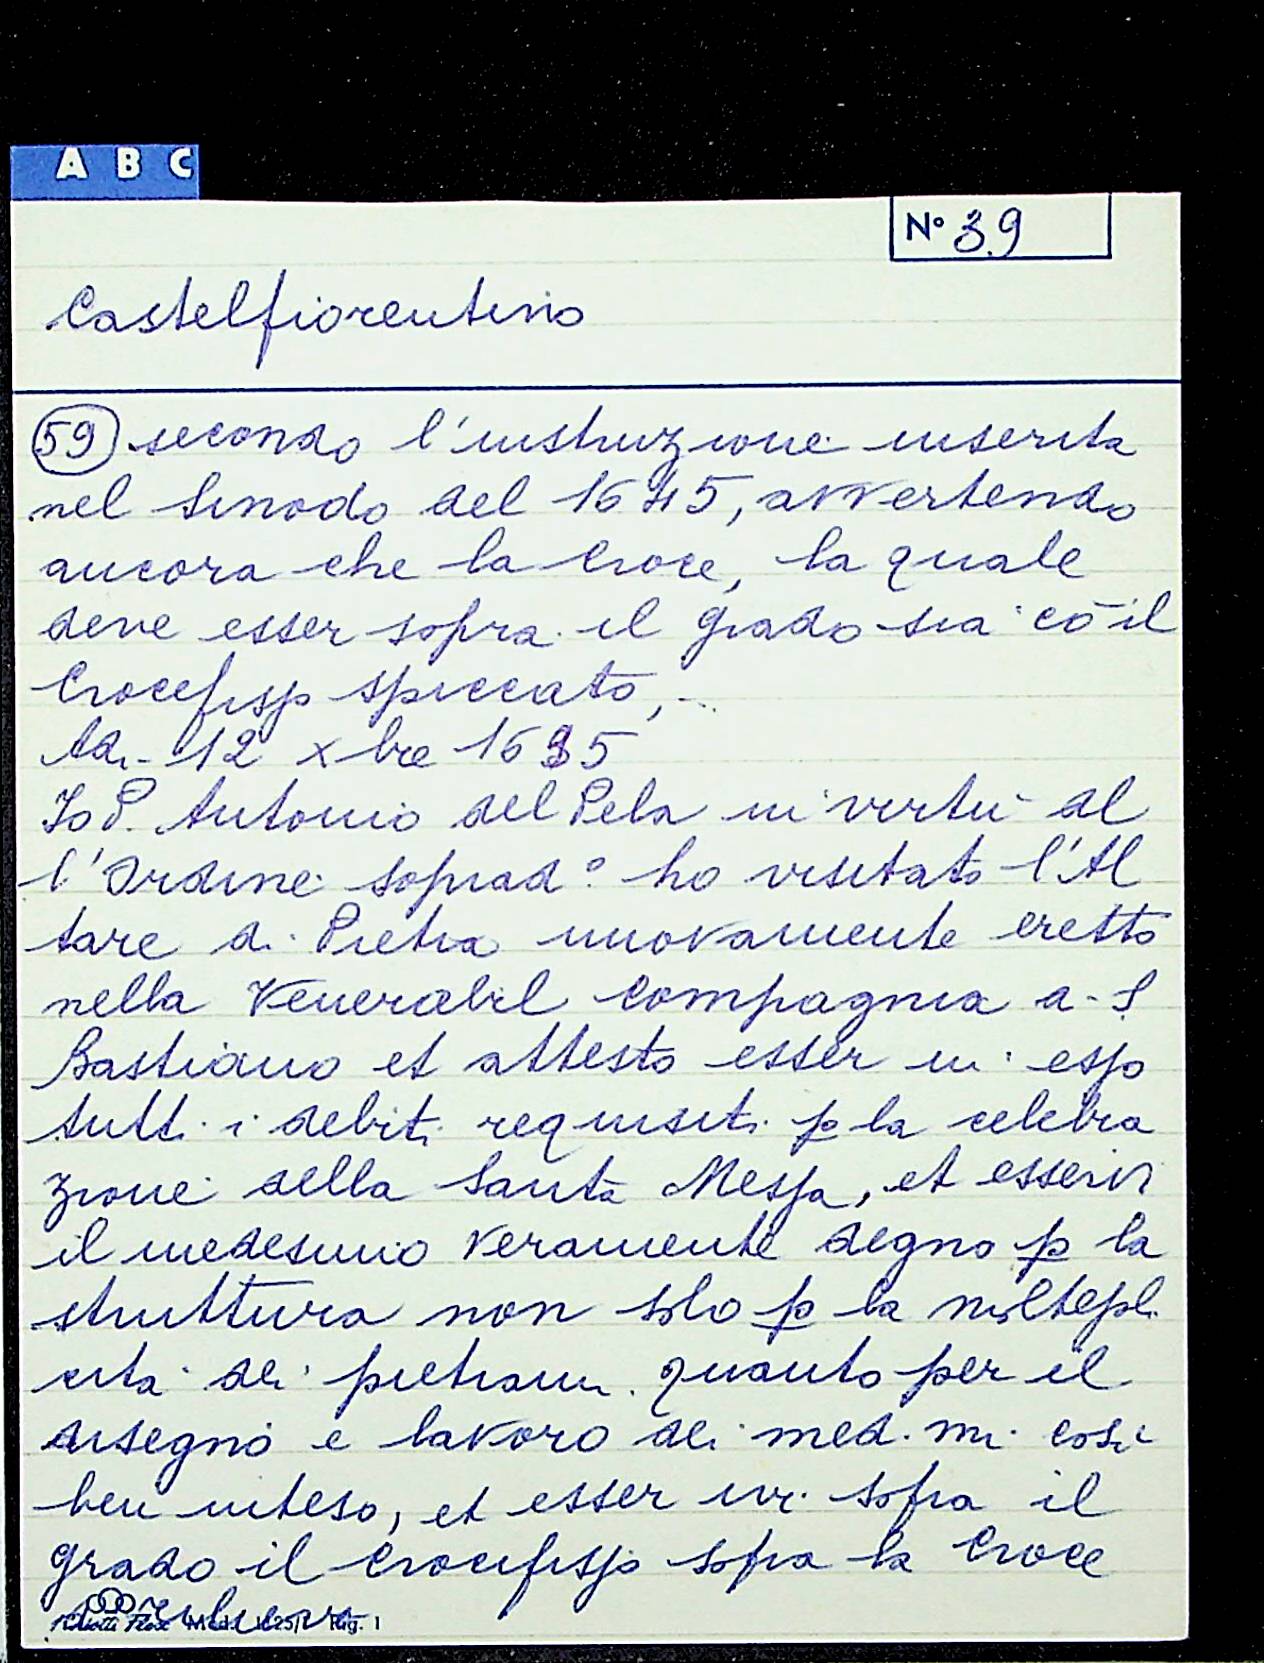 A B C
N° 39
Castelfiorentino
59 secondo l'instruzione inserita
nel Sinodo del 1645, avvertendo
ancora che la Croce, la quale
deve esser sopra il grado sia cō il
Crocefisso spiccato,
Adi 12 xbre 1695
Io P. Antonio del Pela in vertù del
l'Ordine soprad° ho visitato l'Al
tare di Pietra nuovamente eretto
nella Venerabil Compagnia di S
Bastiano et attesto esser in esso
tutti i debiti requisiti p la celebra
zione della Santa Messa, et esservi
il medesimo veramente degno p la
struttura non solo p la moltepli
cità dei pietrami quanto per il
disegno e lavoro dei med.mi così
ben inteso, et esser ivi sopra il
grado il Crocifisso sopra la Croce
Pag. 1